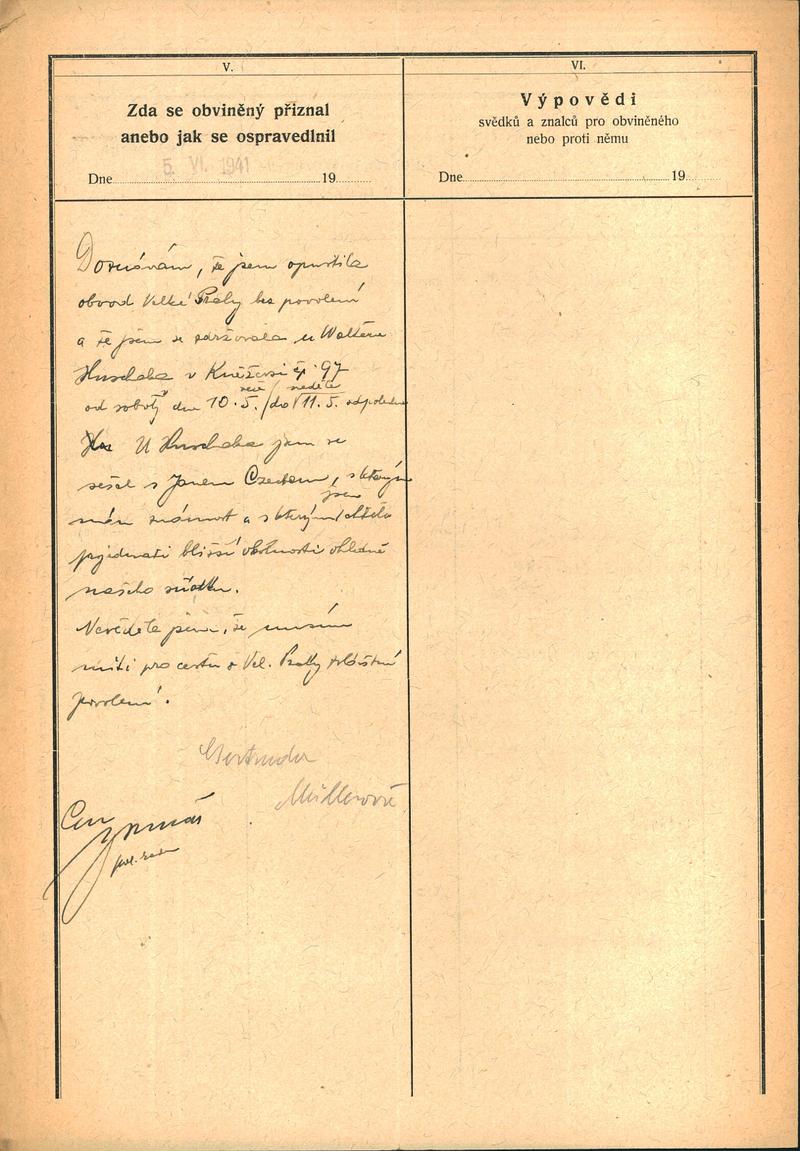 V.
Zda se obviněný přiznal
anebo jak se ospravedlnil
Dne 5. VI. 1941 19
VI.
Výpovědi
svědků a znalců pro obviněného
nebo proti němu
Dne 19
Doznávám, že jsem opustila
obvod Velké Prahy bez povolení
a že jsem se zdržovala u Waltera
v Kněževsi čp. 97
od soboty dne 10.5. / do neděle 11.5. odpoledne
U jsem se
sešel s Janem, s kterým
mám známost a s kterým jsem chtěla
projednati bližší okolnosti ohledně
našeho sňatku.
Nevěděla jsem, že musím
míti pro cestu z Vel. Prahy zvláštní
povolení.
Gertruda
Müllerová